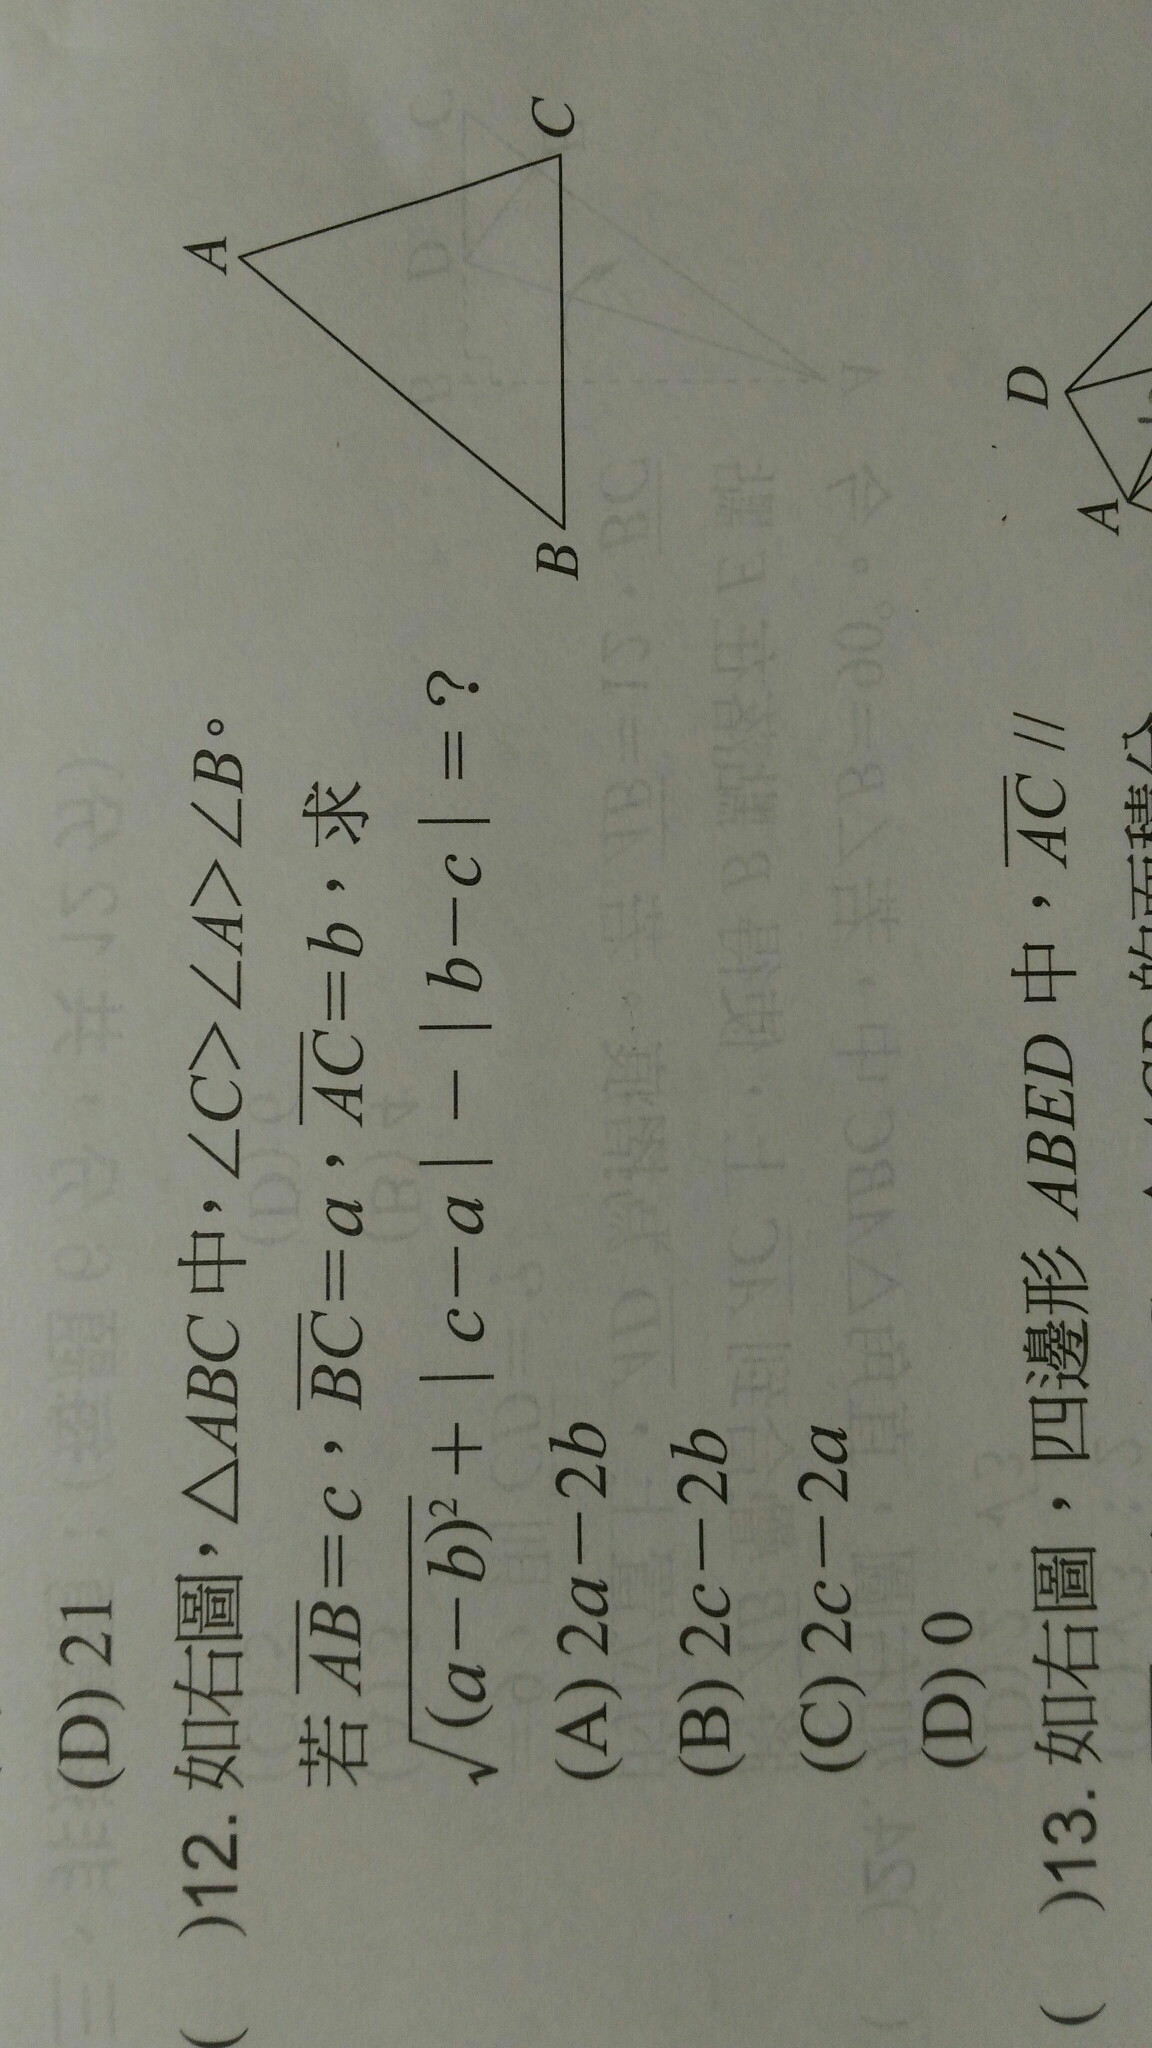 (D) 21
( )12. 如右圖，△ABC 中，∠C>∠A>∠B。
若 AB=c，BC=a，AC=b，求
√(a−b)²+|c−a|−|b−c|=？
(A) 2a−2b
(B) 2c−2b
(C) 2c−2a
(D) 0
A
B
C
( )13. 如右圖，四邊形 ABED 中，AC //
的面積分
D
A